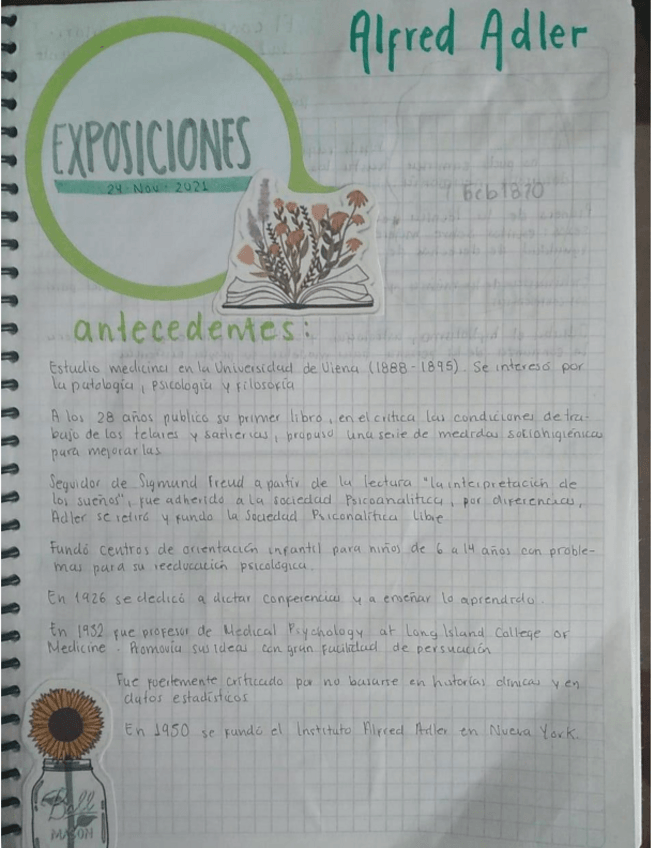 Alfred Adler
EXPOSICIONES
24 · Nov · 2021
antecedentes:
Estudio medicina en la Universidad de Viena (1888-1895). Se intereso por
la patologia, psicologia y filosofia
A los 28 años publico su primer libro, en el critica las condiciones de tra-
bajo de los telares y sastrerias, propuso una serie de medidas sociohigiénicas
para mejorarlas
Seguidor de Sigmund Freud a partir de la lectura "la interpretación de
los sueños", fue adherido a la sociedad Psicoanalítica, por diferencias,
Adler se retiró y fundo la Sociedad Psiconalítica Libre
Fundó centros de orientación infantil para niños de 6 a 14 años con proble-
mas para su reeducación psicológica.
En 1926 se dedicó a dictar conferencias y a enseñar lo aprendido.
En 1932 fue profesor de Medical Psychology at Long Island College of
Medicine. Promovia sus ideas con gran facilidad de persuación
Fue fuertemente criticado por no basarse en historias clinicas y en
datos estadísticos
En 1950 se fundó el Instituto Alfred Adler en Nueva York.
Ball
MASON